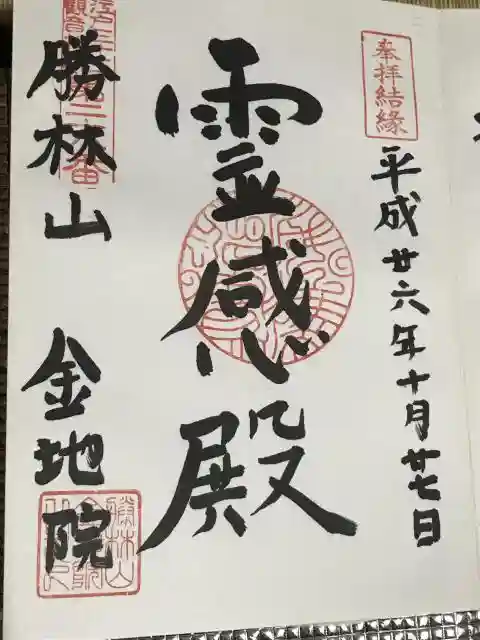 奉拝結縁
平成廿六年十月廿七日
霊感殿
江戸三
観音
二
番
勝林山 金地院
勝林山